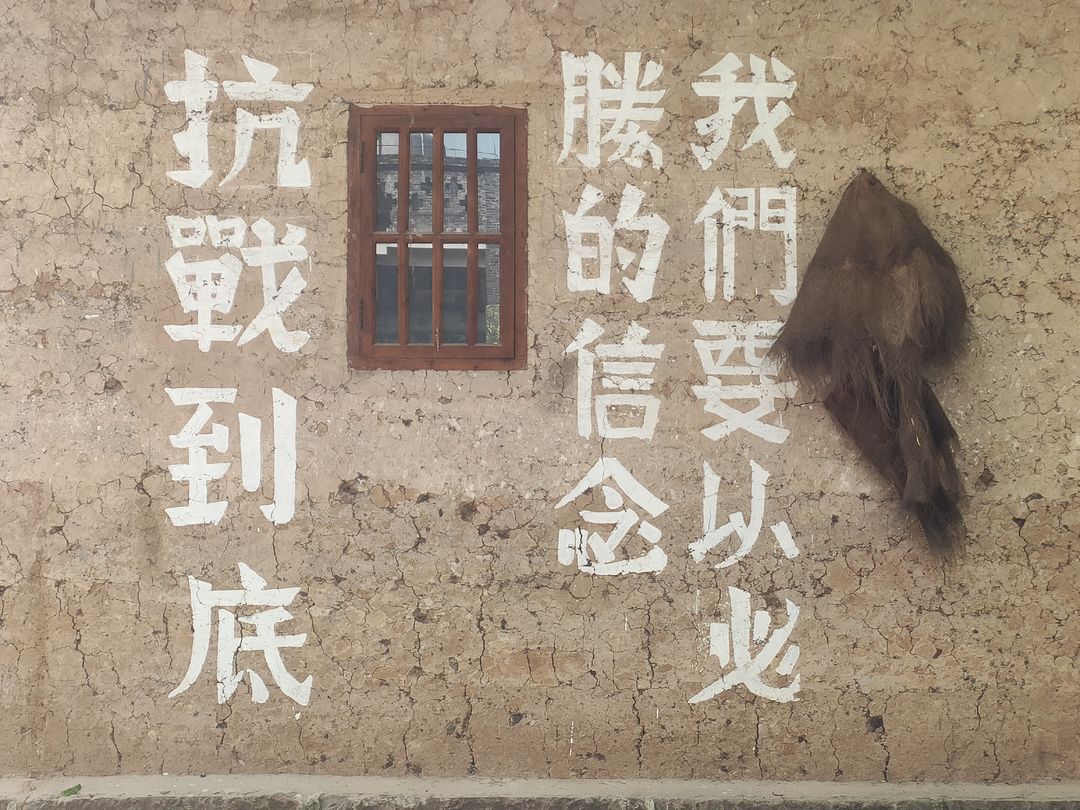 我們要以必
勝的信念
抗戰到底